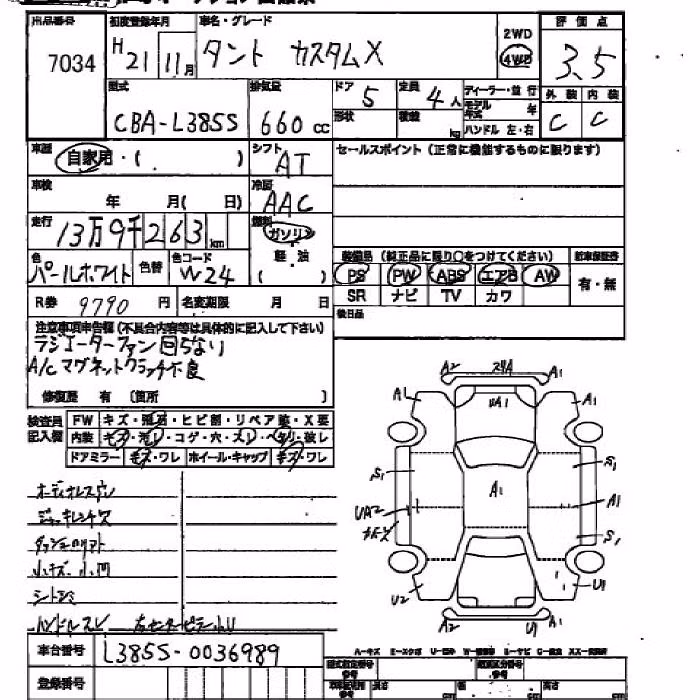 出品番号 初度登録年月 車名・グレード 評価点
7034 H21 11月 タント カスタムX 2WD 4WD 3.5
型式 排気量 ドア 5 定員 4人 ディーラー・並行 外装 内装
CBA-L385S 660cc 形状 積載 kg モデル年式 年 C C
ハンドル 左・右
車歴 自家用・( ) シフト AT セールスポイント(正常に機能するものに限ります)
車検 年 月( 日) 冷房 AAC
走行 13万9千263km 燃料 ガソリン
軽・油
( )
装備品(純正品に限り○をつけてください)
色 パールホワイト 色替 色コード W24 PS PW ABS エアB AW 有・無
SR ナビ TV カワ
R券 9790円 名変期限 月 日 後日品
注意事項申告欄(不具合内容等は具体的に記入して下さい)
ラジエーターファン回らない
A/Cマグネットクラッチ不良
修復歴 有 (箇所 )
検査員記入欄 FW キズ・飛石・ヒビ割・リペア跡・X要
内装 キズ・汚レ・コゲ・穴・スレ・ヘタリ・破レ
ドアミラー キズ・ワレ ホイール・キャップ キズ・ワレ
A2 24A A1
A1 UA1 A1
S1 A1 S1
UA2 A1
S1
U2 U1
A2 U1
オーディオレスダン
ジャッキレンチ欠
小キズ・小凹
シトシミ
ハンドルスレ
車台番号 L385S-0036989
登録番号